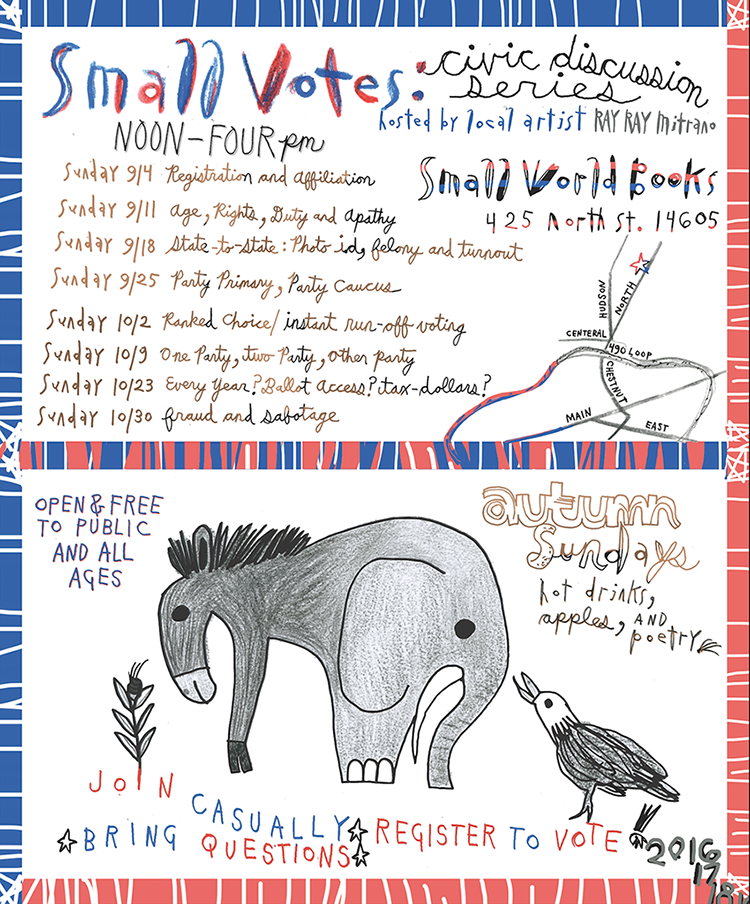 Small Votes:
civic discussion
series
hosted by local artist RAY RAY mitrano
NOON-FOUR pm
Sunday 9/4 Registration and Affiliation
Sunday 9/11 Age, Rights, Duty and Apathy
Sunday 9/18 State-to-State: Photo id, felony and turnout
Sunday 9/25 Party Primary, Party Caucus
Sunday 10/2 Ranked Choice/instant run-off voting
Sunday 10/9 One Party, two Party, other party
Sunday 10/23 Every Year? Ballot Access? tax-dollars?
Sunday 10/30 fraud and sabotage
Small World Books
425 North St. 14605
HUDSON
NORTH
CENTERAL
490 LOOP
CHESTNUT
MAIN
EAST
OPEN & FREE
TO PUBLIC
AND ALL
AGES
autumn
Sundays
hot drinks,
apples, AND
poetry
JOIN
CASUALLY
BRING QUESTIONS
REGISTER TO VOTE
2016
17
18